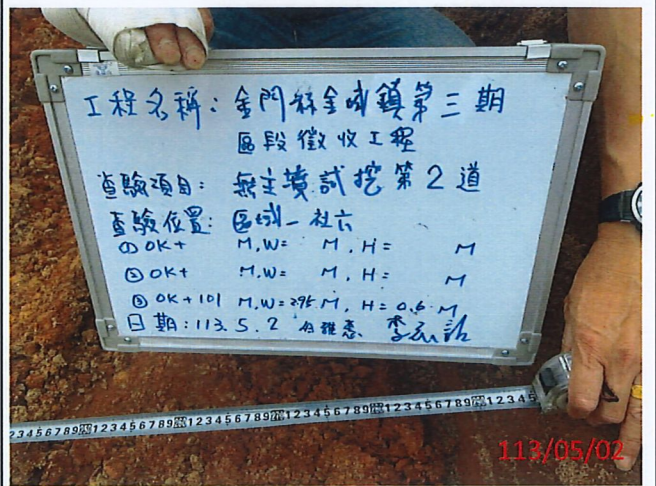 工程名稱：金門縣金城鎮第三期
區段徵收工程
查驗項目：無主墳試挖第2道
查驗位置：區域一社六
①OK+ M,W= M,H= M
②OK+ M,W= M,H= M
③OK+101 M,W=295M,H=0.6M
日期:113.5.2
113/05/02